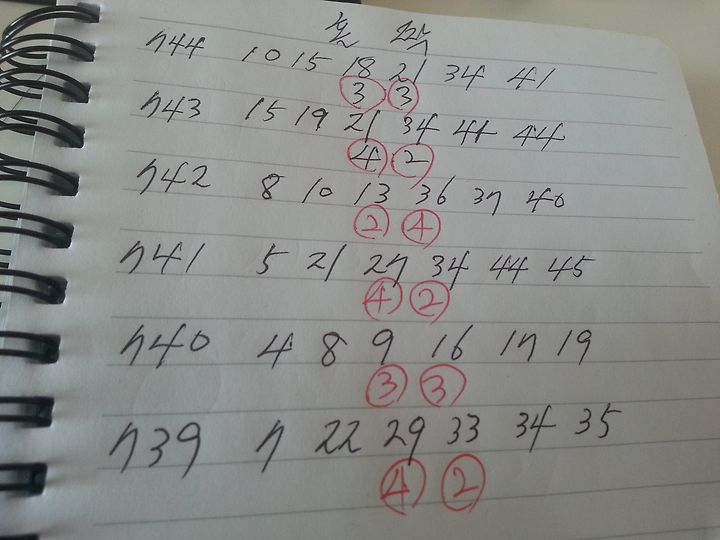 홀 짝
744 10 15 18 21 34 41
3 3
743 15 19 21 34 41 44
4 2
742 8 10 13 36 37 40
2 4
741 5 21 27 34 44 45
4 2
740 4 8 9 16 17 19
3 3
739 7 22 29 33 34 35
4 2